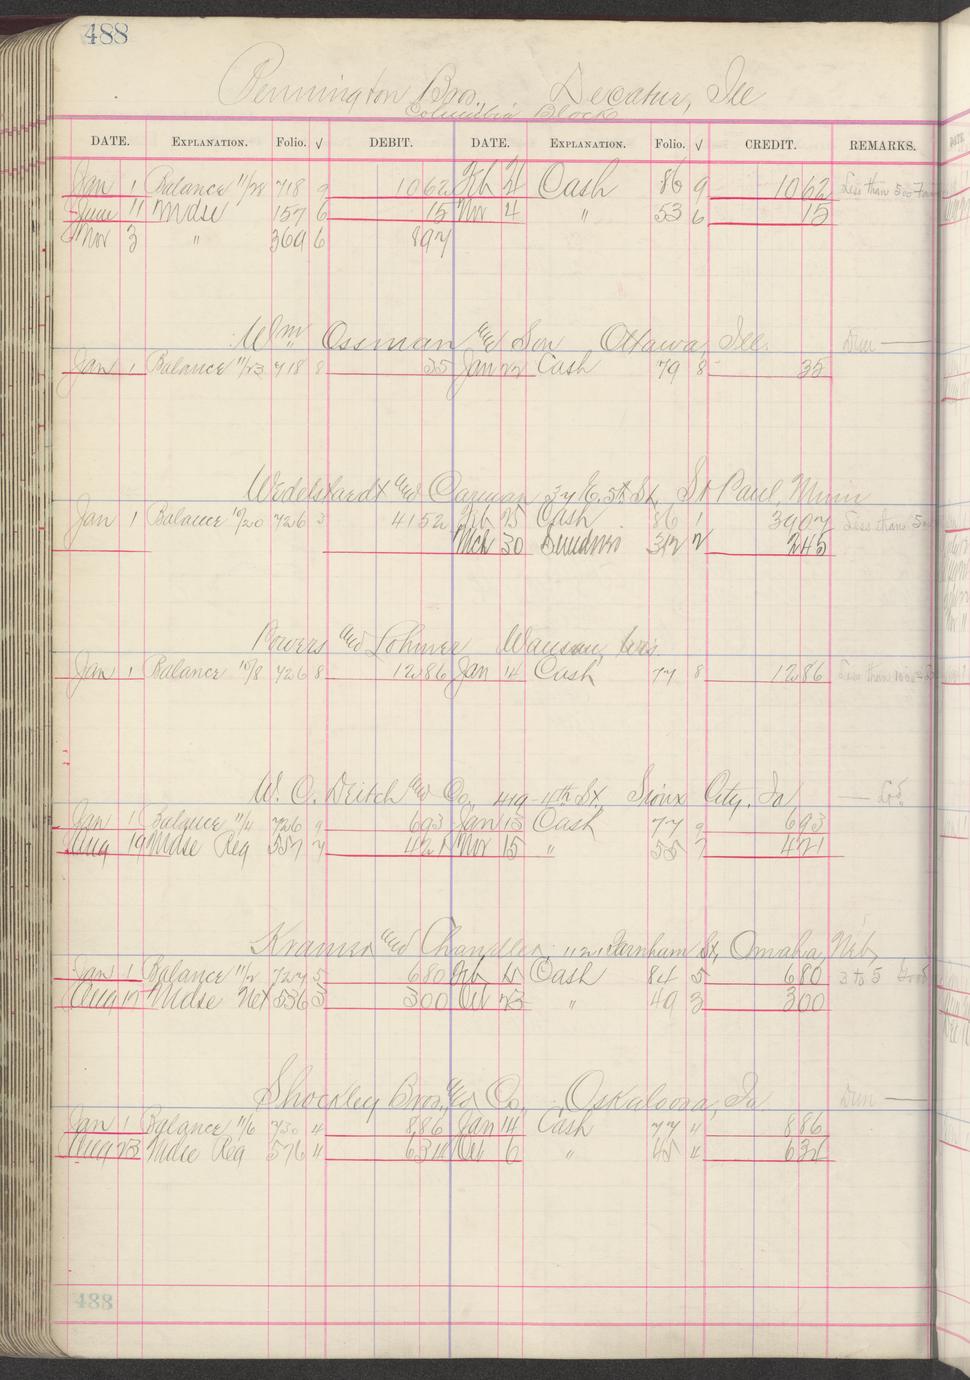 488
Pennington Bros., Decatur, Ill
Columbia Block
DATE. EXPLANATION. Folio. √ DEBIT. DATE. EXPLANATION. Folio. √ CREDIT. REMARKS.
Jan 1 Balance 11/28 718 9 1062 Feb 21 Cash 86 9 1062 Less than 500
June 11 Mdse 157 6 15 Nov 4 " 53 6 15
Nov 3 " 369 6 897
Wm Ossman and Son Ottawa, Ill. Dun —
Jan 1 Balance 11/23 718 8 35 Jan 22 Cash 79 8 35
Wedelstaedt and Carman 37 E. 5th St, St Paul, Minn
Jan 1 Balance 10/20 726 3 4152 Feb 25 Cash 86 1 3907 Less than
Mch 30 312 2 245
Powers and Lohmer Wausau, Wis.
Jan 1 Balance 10/8 726 8 1286 Jan 14 Cash 77 8 1286 Less than
W. C. Deitch and Co, 419-4th St, Sioux City, Ia
Jan 1 Balance 11/4 726 9 693 Jan 13 Cash 77 9 693
Aug 19 Mdse Reg 557 7 421 Nov 15 " 55 7 421
Kramer and Chandler, Farnham St, Omaha, Neb,
Jan 1 Balance 11/2 727 5 680 Feb 15 Cash 84 5 680 3 to 5
Aug 17 Mdse Net 536 3 300 Oct 23 " 49 3 300
Shockley Bros, and Co, Oskaloosa, Ia Dun —
Jan 1 Balance 11/6 730 4 886 Jan 14 Cash 77 4 886
Aug 23 Mdse Reg 576 4 634 Oct 6 " 45 4 634
488